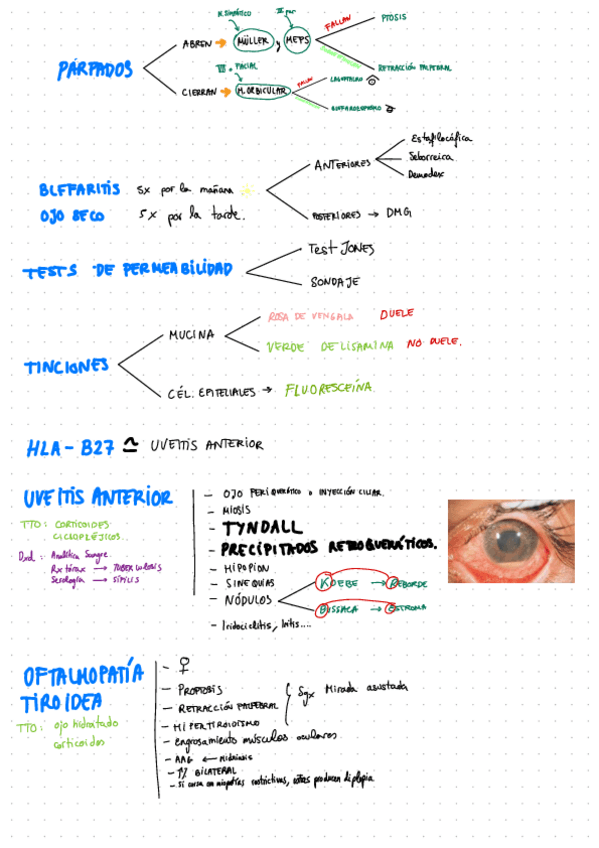 PÁRPADOS
ABREN → MÜLLER y MEPS
N. SIMPÁTICO
III par
FALLAN
PTOSIS
RETRACCIÓN PALPEBRAL
CIERRAN → M. ORBICULAR
VII. FACIAL
FALLAN
LAGOFTALMO
BLEFAROESPASMO
BLEFARITIS Sx por la mañana
OJO SECO Sx por la tarde.
ANTERIORES
Estafilocócica
Seborreica
Demodex
POSTERIORES → DMG
TESTS DE PERMEABILIDAD
Test JONES
SONDAJE
TINCIONES
MUCINA
ROSA DE VENGALA DUELE
VERDE DE LISAMINA NO DUELE.
CÉL. EPITELIALES → FLUORESCEÍNA
HLA-B27 ≏ UVEITIS ANTERIOR
UVEITIS ANTERIOR
TTO: CORTICOIDES
CICLOPLÉJICOS.
Dxd: Analítica Sangre
Rx tórax → TUBERCULOSIS
Serología → SÍFILIS
- OJO PERIQUERÁTICO o INYECCIÓN CILIAR.
- MIOSIS
- TYNDALL
- PRECIPITADOS RETROQUERÁTICOS.
- HIPOPION
- SINEQUIAS
- NÓDULOS
KOEBE → REBORDE
BUSSACA → ESTROMA
- Iridociclitis, Iritis....
OFTALMOPATÍA
TIROIDEA
TTO: ojo hidratado
corticoides
- ♀
- PROPTOSIS
- RETRACCIÓN PALPEBRAL
- HIPERTIROIDISMO
Sgx Mirada asustada
- engrosamiento músculos oculares
- AAG ← midriasis
- BILATERAL
- Si cursa con miopatías restrictivas, estas producen diplopia